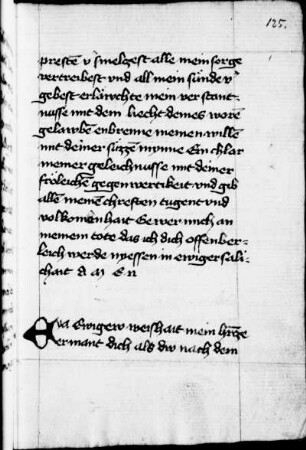 125.
presten vnd smelgest alle mein sorge
vertreibest vnd all mein sünde v̈
gebest erläwchte mein verstant
nusse mit dem liecht deines worē
gelawben enbrenne meinen willē
mit deiner süzzen mynne Ein chlar
meiner geleichnusse mit deiner
fröleichē gegenwertikeit vnd gib
allē meinē chreften tugent vnd
volkomenhait Bewer mich an
meinem tote das ich dich offenber
leich werde nyessen in ewiger sáli
chait A M E N
Eya Ewigew weishait mein hercze
ermant dich als dw nach dem